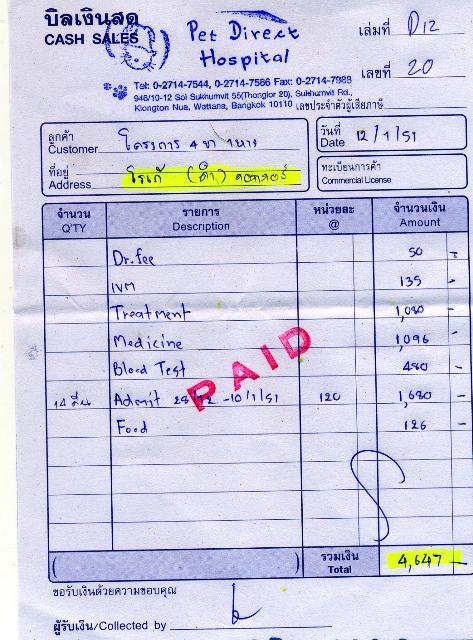 บิลเงินสด
CASH SALES
Pet Direct
Hospital
เล่มที่ D12
เลขที่ 20
Tel: 0-2714-7544, 0-2714-7566 Fax: 0-2714-7989
946/10-12 Soi Sukhumvit 55(Thonglor 20), Sukhumvit Rd.,
Klongton Nua, Wattana, Bangkok 10110 เลขประจำตัวผู้เสียภาษี
ลูกค้า
Customer โครงการ 4 ขา
ที่อยู่
Address
วันที่
Date 12/1/51
ทะเบียนการค้า
Commercial License
จำนวน รายการ หน่วยละ จำนวนเงิน
Q'TY Description @ Amount
Dr.fee 50 -
IVM 135 -
Treatment 1,080 -
Medicine 1,096 -
Blood Test 480 -
14 คืน Admit 28/12 -10/1/51 120 1,680 -
Food 126 -
PAID
รวมเงิน
Total 4,647 -
ขอรับเงินด้วยความขอบคุณ
ผู้รับเงิน/Collected by